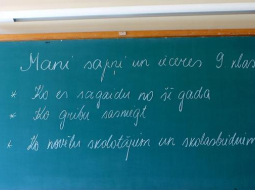 Mani sapņi un ieceres 9. klas
* Ko es sagaidu no šī gada
* Ko gribu sasniegt
* Ko novēlu skolotājiem un skolasbiedriem